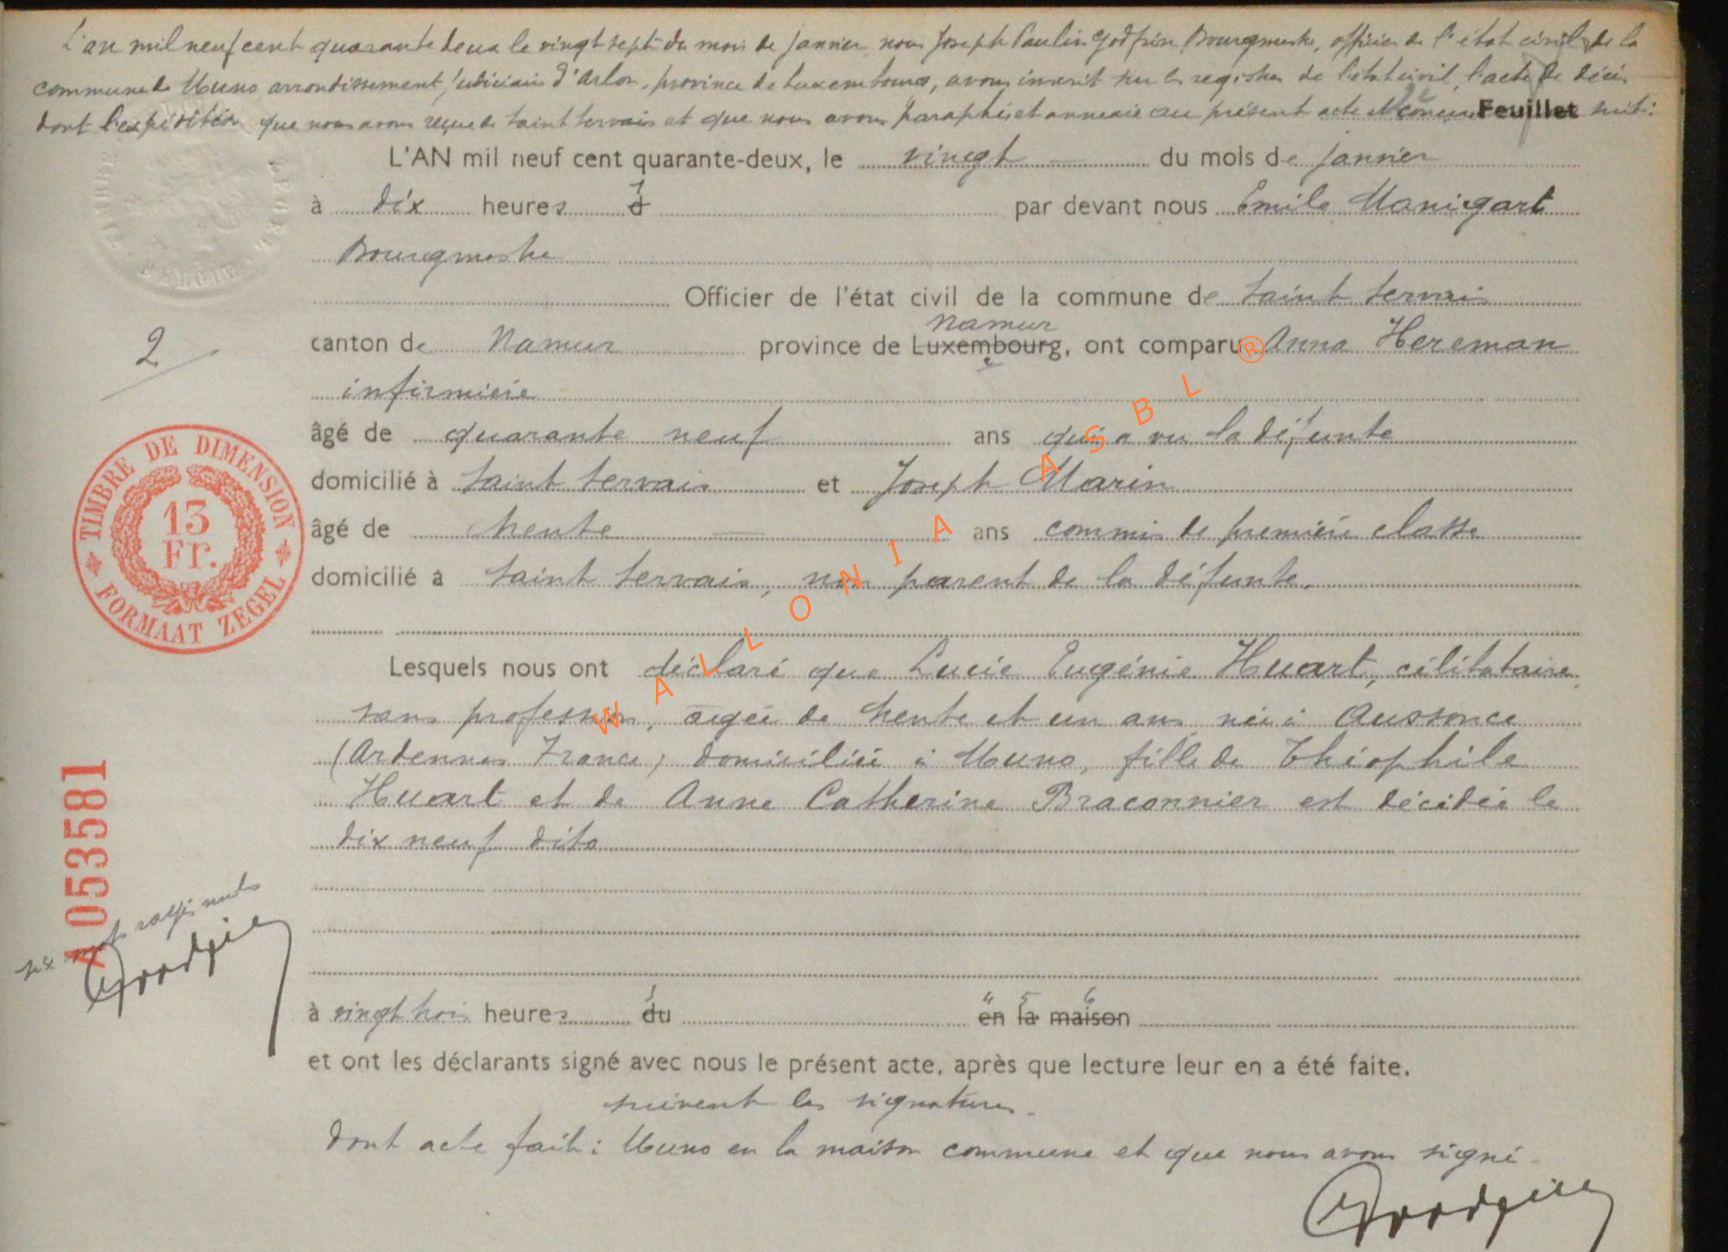 L'an mil neuf cent quarante deux le vingt sept du mois de janvier nous Joseph Paulin Godfrin Bourgmestre, officier de l'état civil de la
commune de Muno arrondissement judiciaire d'Arlon, province de Luxembourg, avons inscrit sur les registres de l'état civil, l'acte de décès
dont l'expédition que nous avons reçue de Saint Servais et que nous avons paraphée et annexée au présent acte Feuillet suit:
L'AN mil neuf cent quarante-deux, le vingt du mois de janvier
à dix heures d par devant nous Emile Manigart
Bourgmestre
Officier de l'état civil de la commune de Saint Servais
Namur
canton de Namur province de Luxembourg, ont comparu Anna Hereman
infirmière
âgé de quarante neuf ans qui a vu la défunte
domicilié à Saint Servais et Joseph Marin
âgé de trente ans commis de première classe
domicilié à Saint Servais, non parent de la défunte.
Lesquels nous ont déclaré que Lucie Eugénie Huart, célibataire,
sans profession, âgée de trente et un ans née à Aussonce
(Ardennes France) domiciliée à Muno, fille de Théophile
Huart et de Anne Catherine Braconnier est décédée le
dix neuf dito
à vingt trois heures du en la maison
et ont les déclarants signé avec nous le présent acte, après que lecture leur en a été faite.
suivent les signatures.
Dont acte fait à Muno en la maison commune et que nous avons signé
2
TIMBRE DE DIMENSION
13
Fr.
FORMAAT ZEGEL
A053581
six mots rayés nuls
BELGIE
WALLONIA ASBL ®